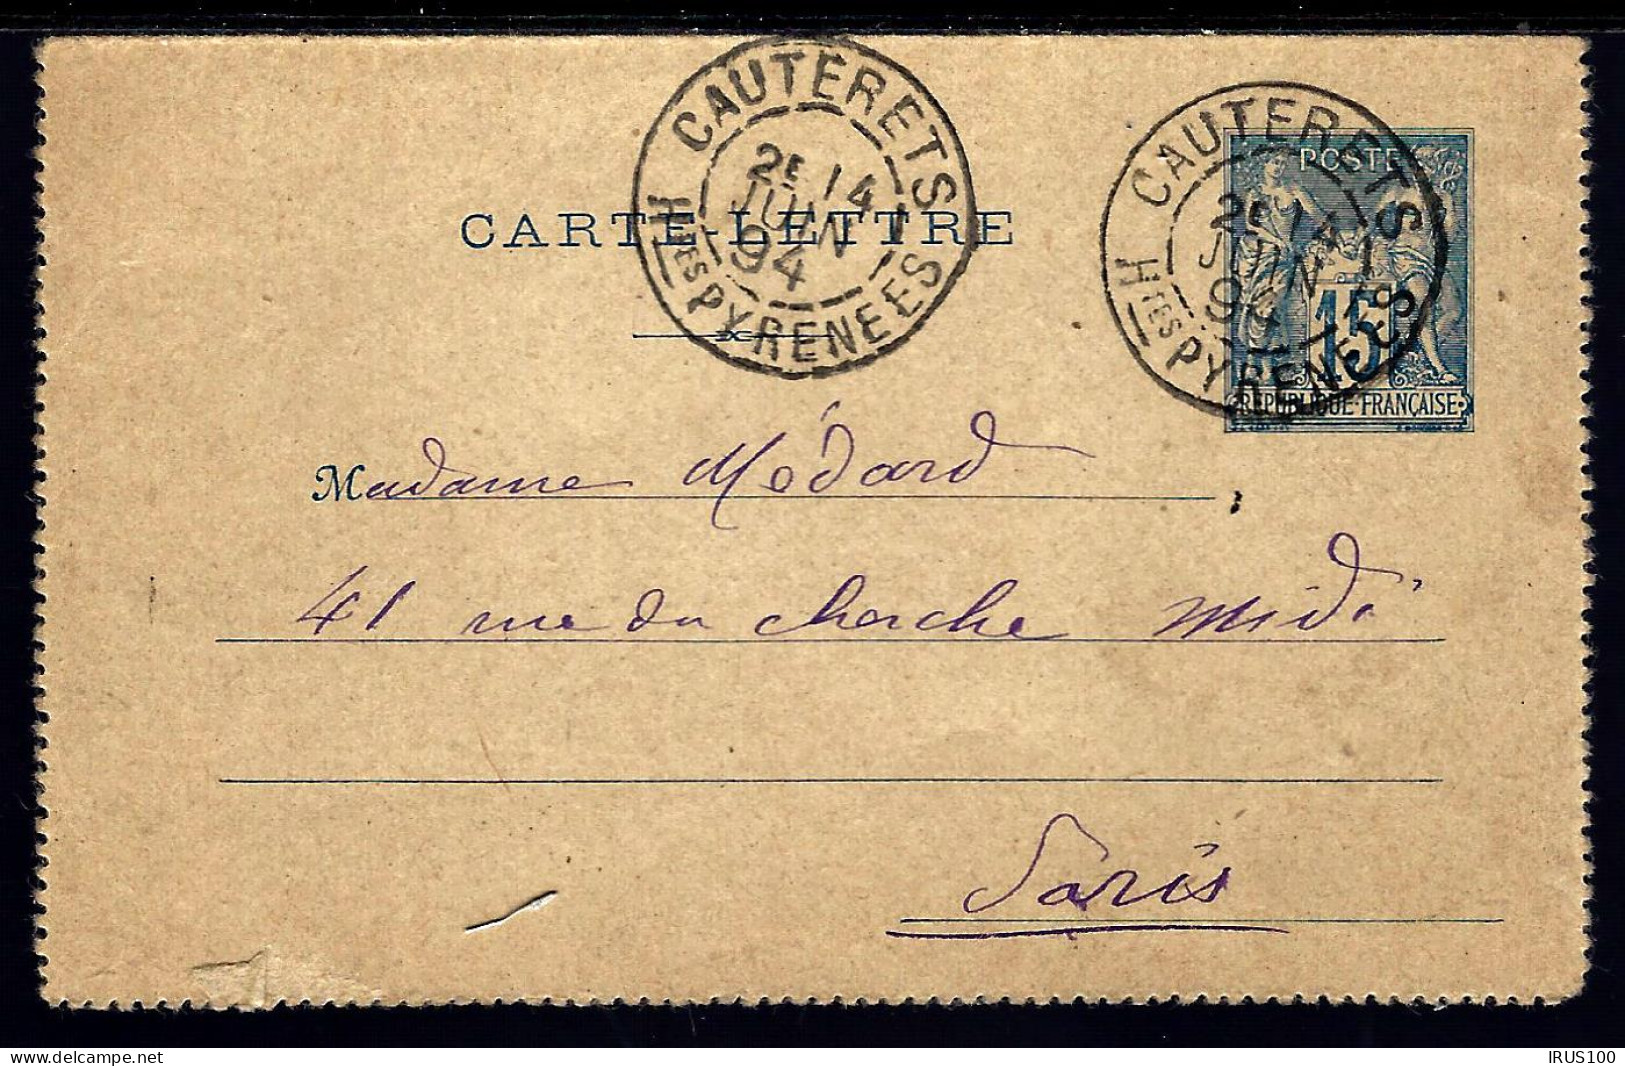 CAUTERETS
2E 14
JUIN
94
HTES PYRENEES
CAUTERETS
2E 14
JUIN
94
HTES PYRENEES
POSTE
15
REPUBLIQUE·FRANÇAISE
CARTE-LETTRE
Madame Médard
41 rue du cherche midi
Paris
IRUS100